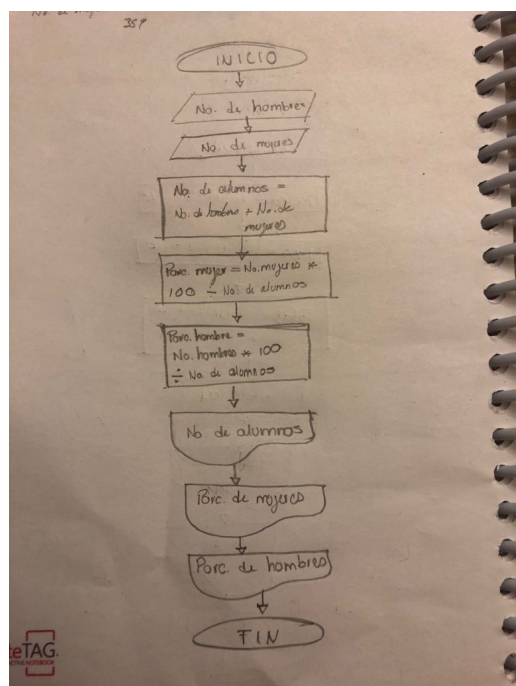 No. de
357
INICIO
No. de hombres
No. de mujeres
No. de alumnos =
No. de hombres + No. de
mujeres
Porc. mujer = No. mujeres *
100 ÷ No. de alumnos
Porc. hombre =
No. hombres * 100
÷ No. de alumnos
No de alumnos
Porc. de mujeres
Porc. de hombres
FIN
eTAG.
ACTIVE NOTEBOOK